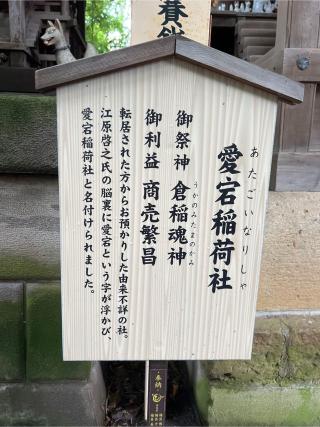 養銭
愛宕稲荷社
あたごいなりしゃ
御祭神 倉稲魂神
うかのみたまのかみ
御利益 商売繁昌
転居された方からお預かりした由来不詳の社。
江原啓之氏の脳裏に愛宕という字が浮かび、
愛宕稲荷社と名付けられました。
奉納